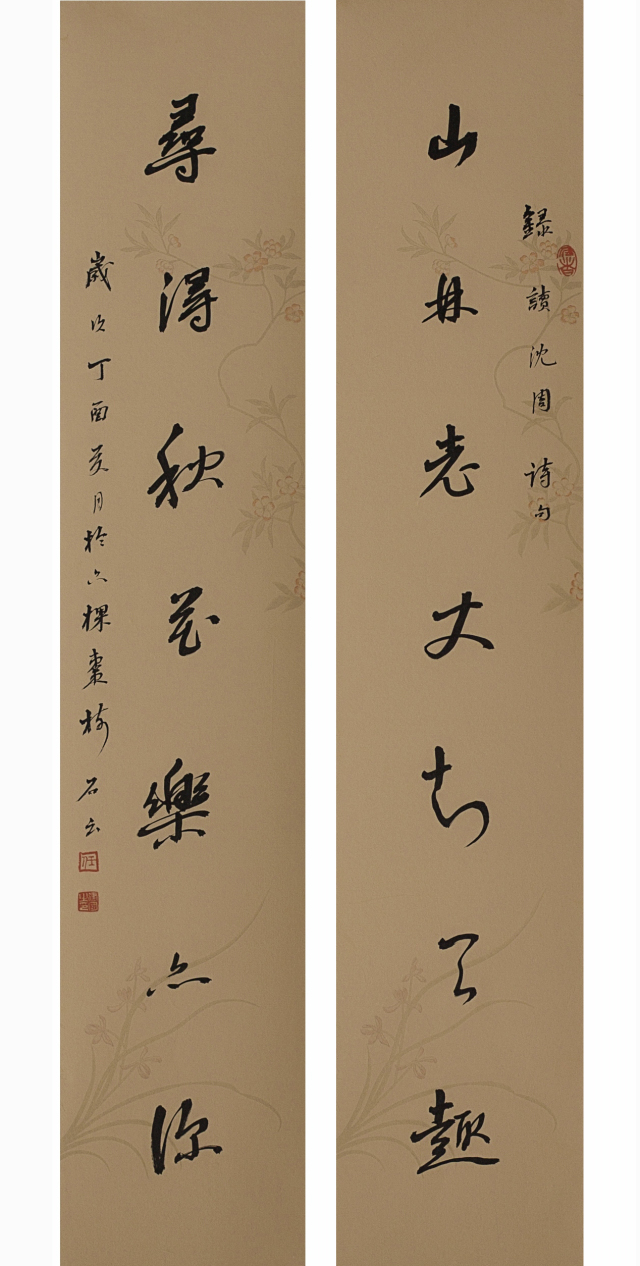 錄讀沈周詩句
山林老丈知天趣
尋得秋花樂亦深
歲次丁酉夏月於六棵棗樹 石云